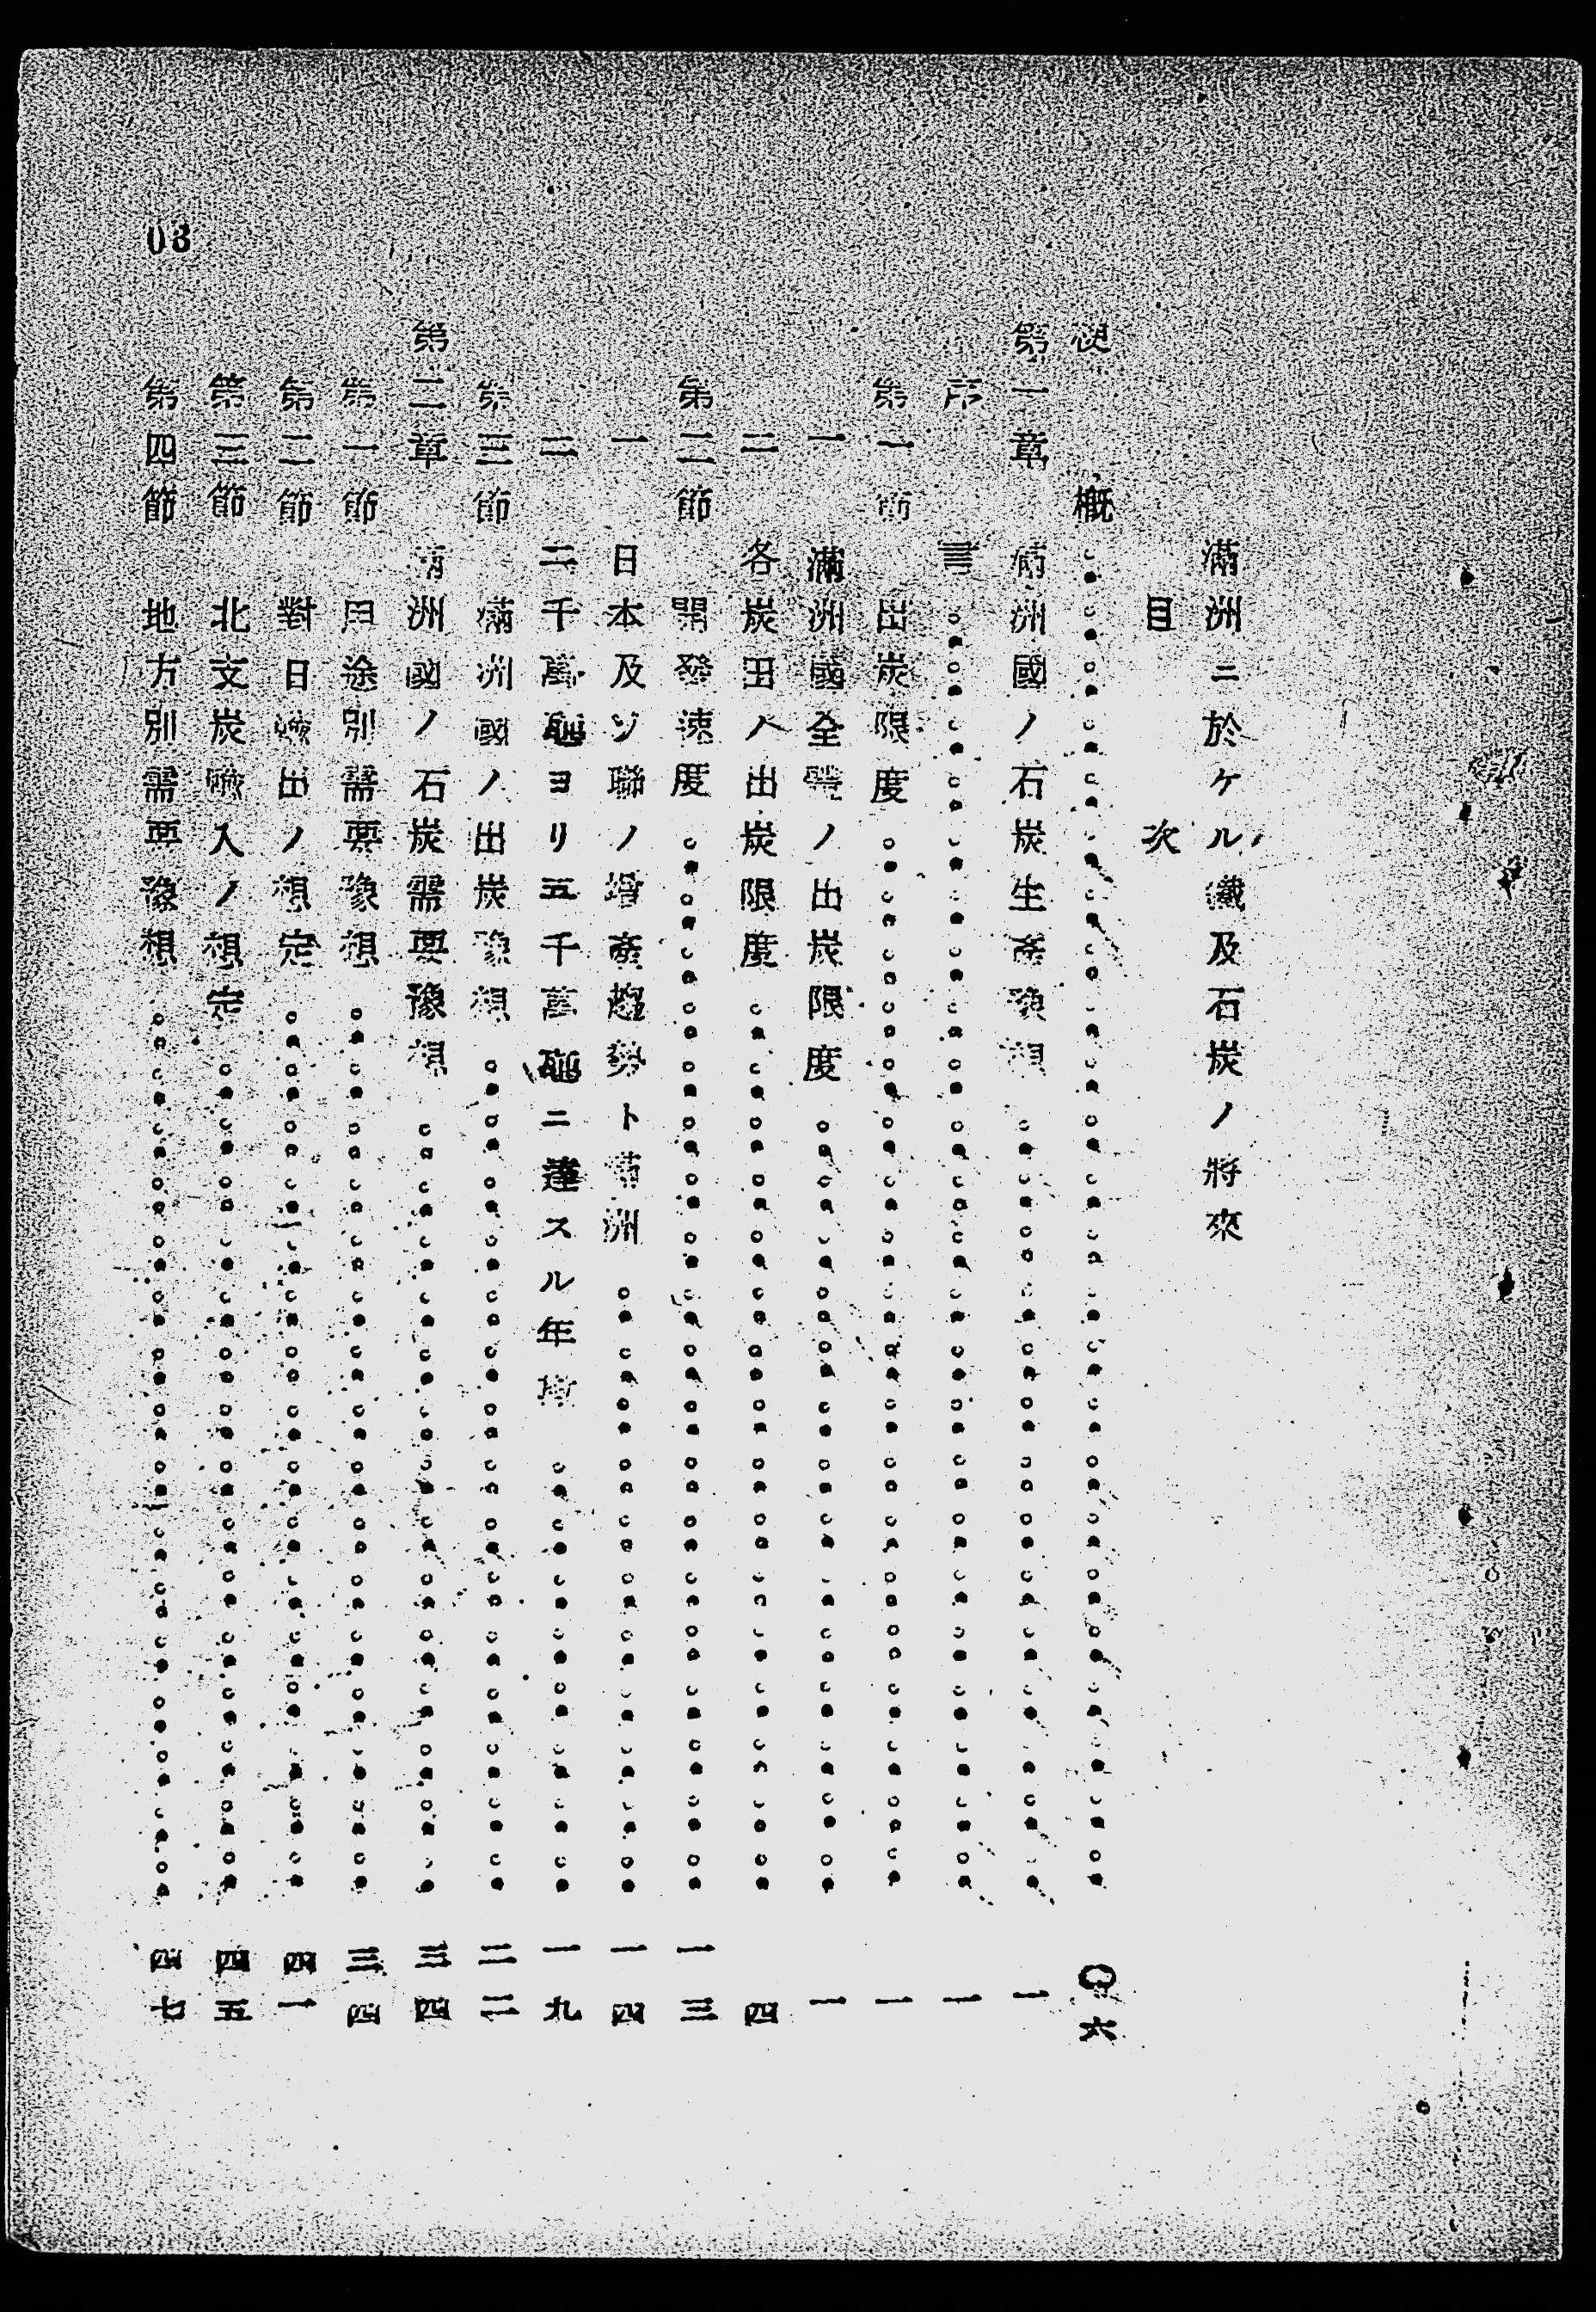 滿洲ニ於ケル鐵及石炭ノ將來
目次
梗概 〇六
第一章 滿洲國ノ石炭生產豫想 一
序言 一
第一節 出炭限度 一
一 滿洲國全體ノ出炭限度 一
二 各炭田ノ出炭限度 四
第二節 開發速度 一三
一 日本及ソ聯ノ增產趨勢ト滿洲 一四
二 二千萬瓲ヨリ五千萬瓲ニ達スル年 一九
第三節 滿洲國ノ出炭豫想 二二
第二章 滿洲國ノ石炭需要豫想 三四
第一節 用途別需要豫想 三四
第二節 對日輸出ノ想定 四一
第三節 北支炭輸入ノ想定 四五
第四節 地方別需要豫想 四七
03